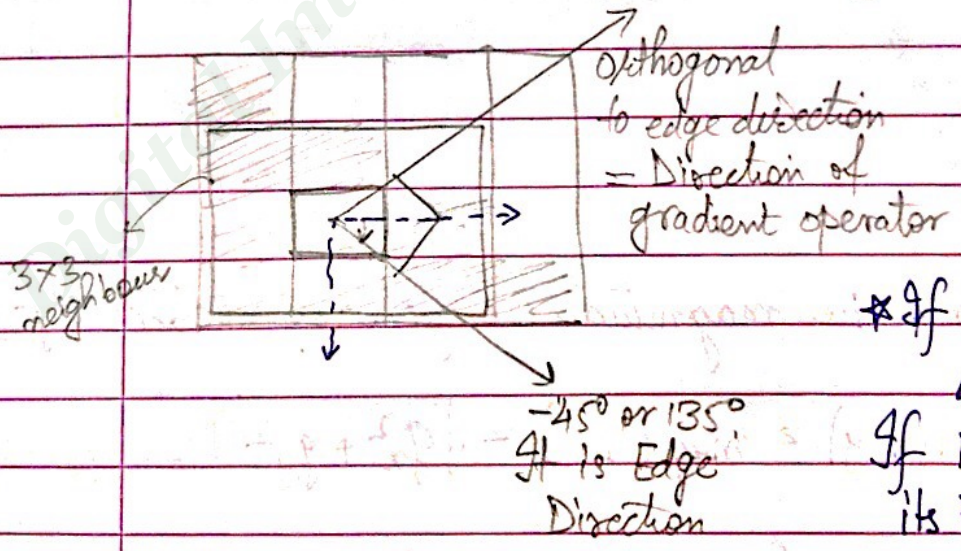 Orthogonal
to edge direction
= Direction of
gradient operator
3×3
neighbour
-45° or 135°
It is Edge
Direction
* If
If
its
Digital Im